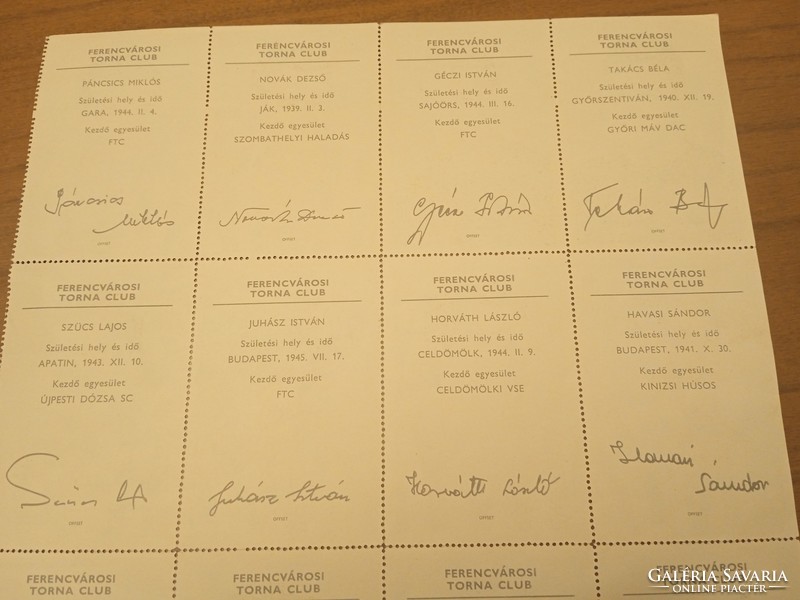 FERENCVÁROSI
TORNA CLUB
PÁNCSICS MIKLÓS
Születési hely és idő
GARA, 1944. II. 4.
Kezdő egyesület
FTC
Páncsics
Miklós
OFFSET
FERENCVÁROSI
TORNA CLUB
NOVÁK DEZSŐ
Születési hely és idő
JÁK, 1939. II. 3.
Kezdő egyesület
SZOMBATHELYI HALADÁS
Novák Dezső
FERENCVÁROSI
TORNA CLUB
GÉCZI ISTVÁN
Születési hely és idő
SAJÓÖRS, 1944. III. 16.
Kezdő egyesület
FTC
OFFSET
FERENCVÁROSI
TORNA CLUB
TAKÁCS BÉLA
Születési hely és idő
GYŐRSZENTIVÁN, 1940. XII. 19.
Kezdő egyesület
GYŐRI MÁV DAC
OFFSET
FERENCVÁROSI
TORNA CLUB
SZŰCS LAJOS
Születési hely és idő
APATIN, 1943. XII. 10.
Kezdő egyesület
ÚJPESTI DÓZSA SC
OFFSET
FERENCVÁROSI
TORNA CLUB
JUHÁSZ ISTVÁN
Születési hely és idő
BUDAPEST, 1945. VII. 17.
Kezdő egyesület
FTC
Juhász István
OFFSET
FERENCVÁROSI
TORNA CLUB
HORVÁTH LÁSZLÓ
Születési hely és idő
CELDÖMÖLK, 1944. II. 9.
Kezdő egyesület
CELDÖMÖLKI VSE
Horváth László
OFFSET
FERENCVÁROSI
TORNA CLUB
HAVASI SÁNDOR
Születési hely és idő
BUDAPEST, 1941. X. 30.
Kezdő egyesület
KINIZSI HÚSOS
Havasi
Sándor
OFFSET
FERENCVÁROSI
TORNA CLUB
FERENCVÁROSI
TORNA CLUB
FERENCVÁROSI
TORNA CLUB
FERENCVÁROSI
GALÉRIA SAVARIA
ONLINE PIACTÉR